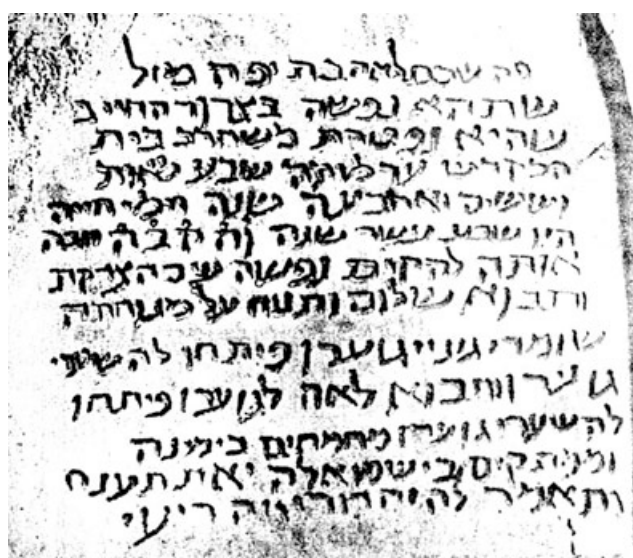 פה שכבת לאה בת יפה מזל
שתהא נפשה בצרור החיים
שהיא נפטרת משחרב בית
המקדש עד מותה שבע מאות
וששים וארבעה שנה וימי חייה
היו שבע עשר שנה והקבה יזכה
אותה להקים נפשה עם הצדקת
ותבוא שלום ותנוח על מנוחתה
שומרי גנזי גן עדן פיתחו לה שערי
גן עדן ותבוא לאה לגן עדן פיתחו
לה שערי גן עדן מחמדים בימינה
וממתקים בישמאלה זאת תענה
ותאמר לה זה דודי וזה ריעי